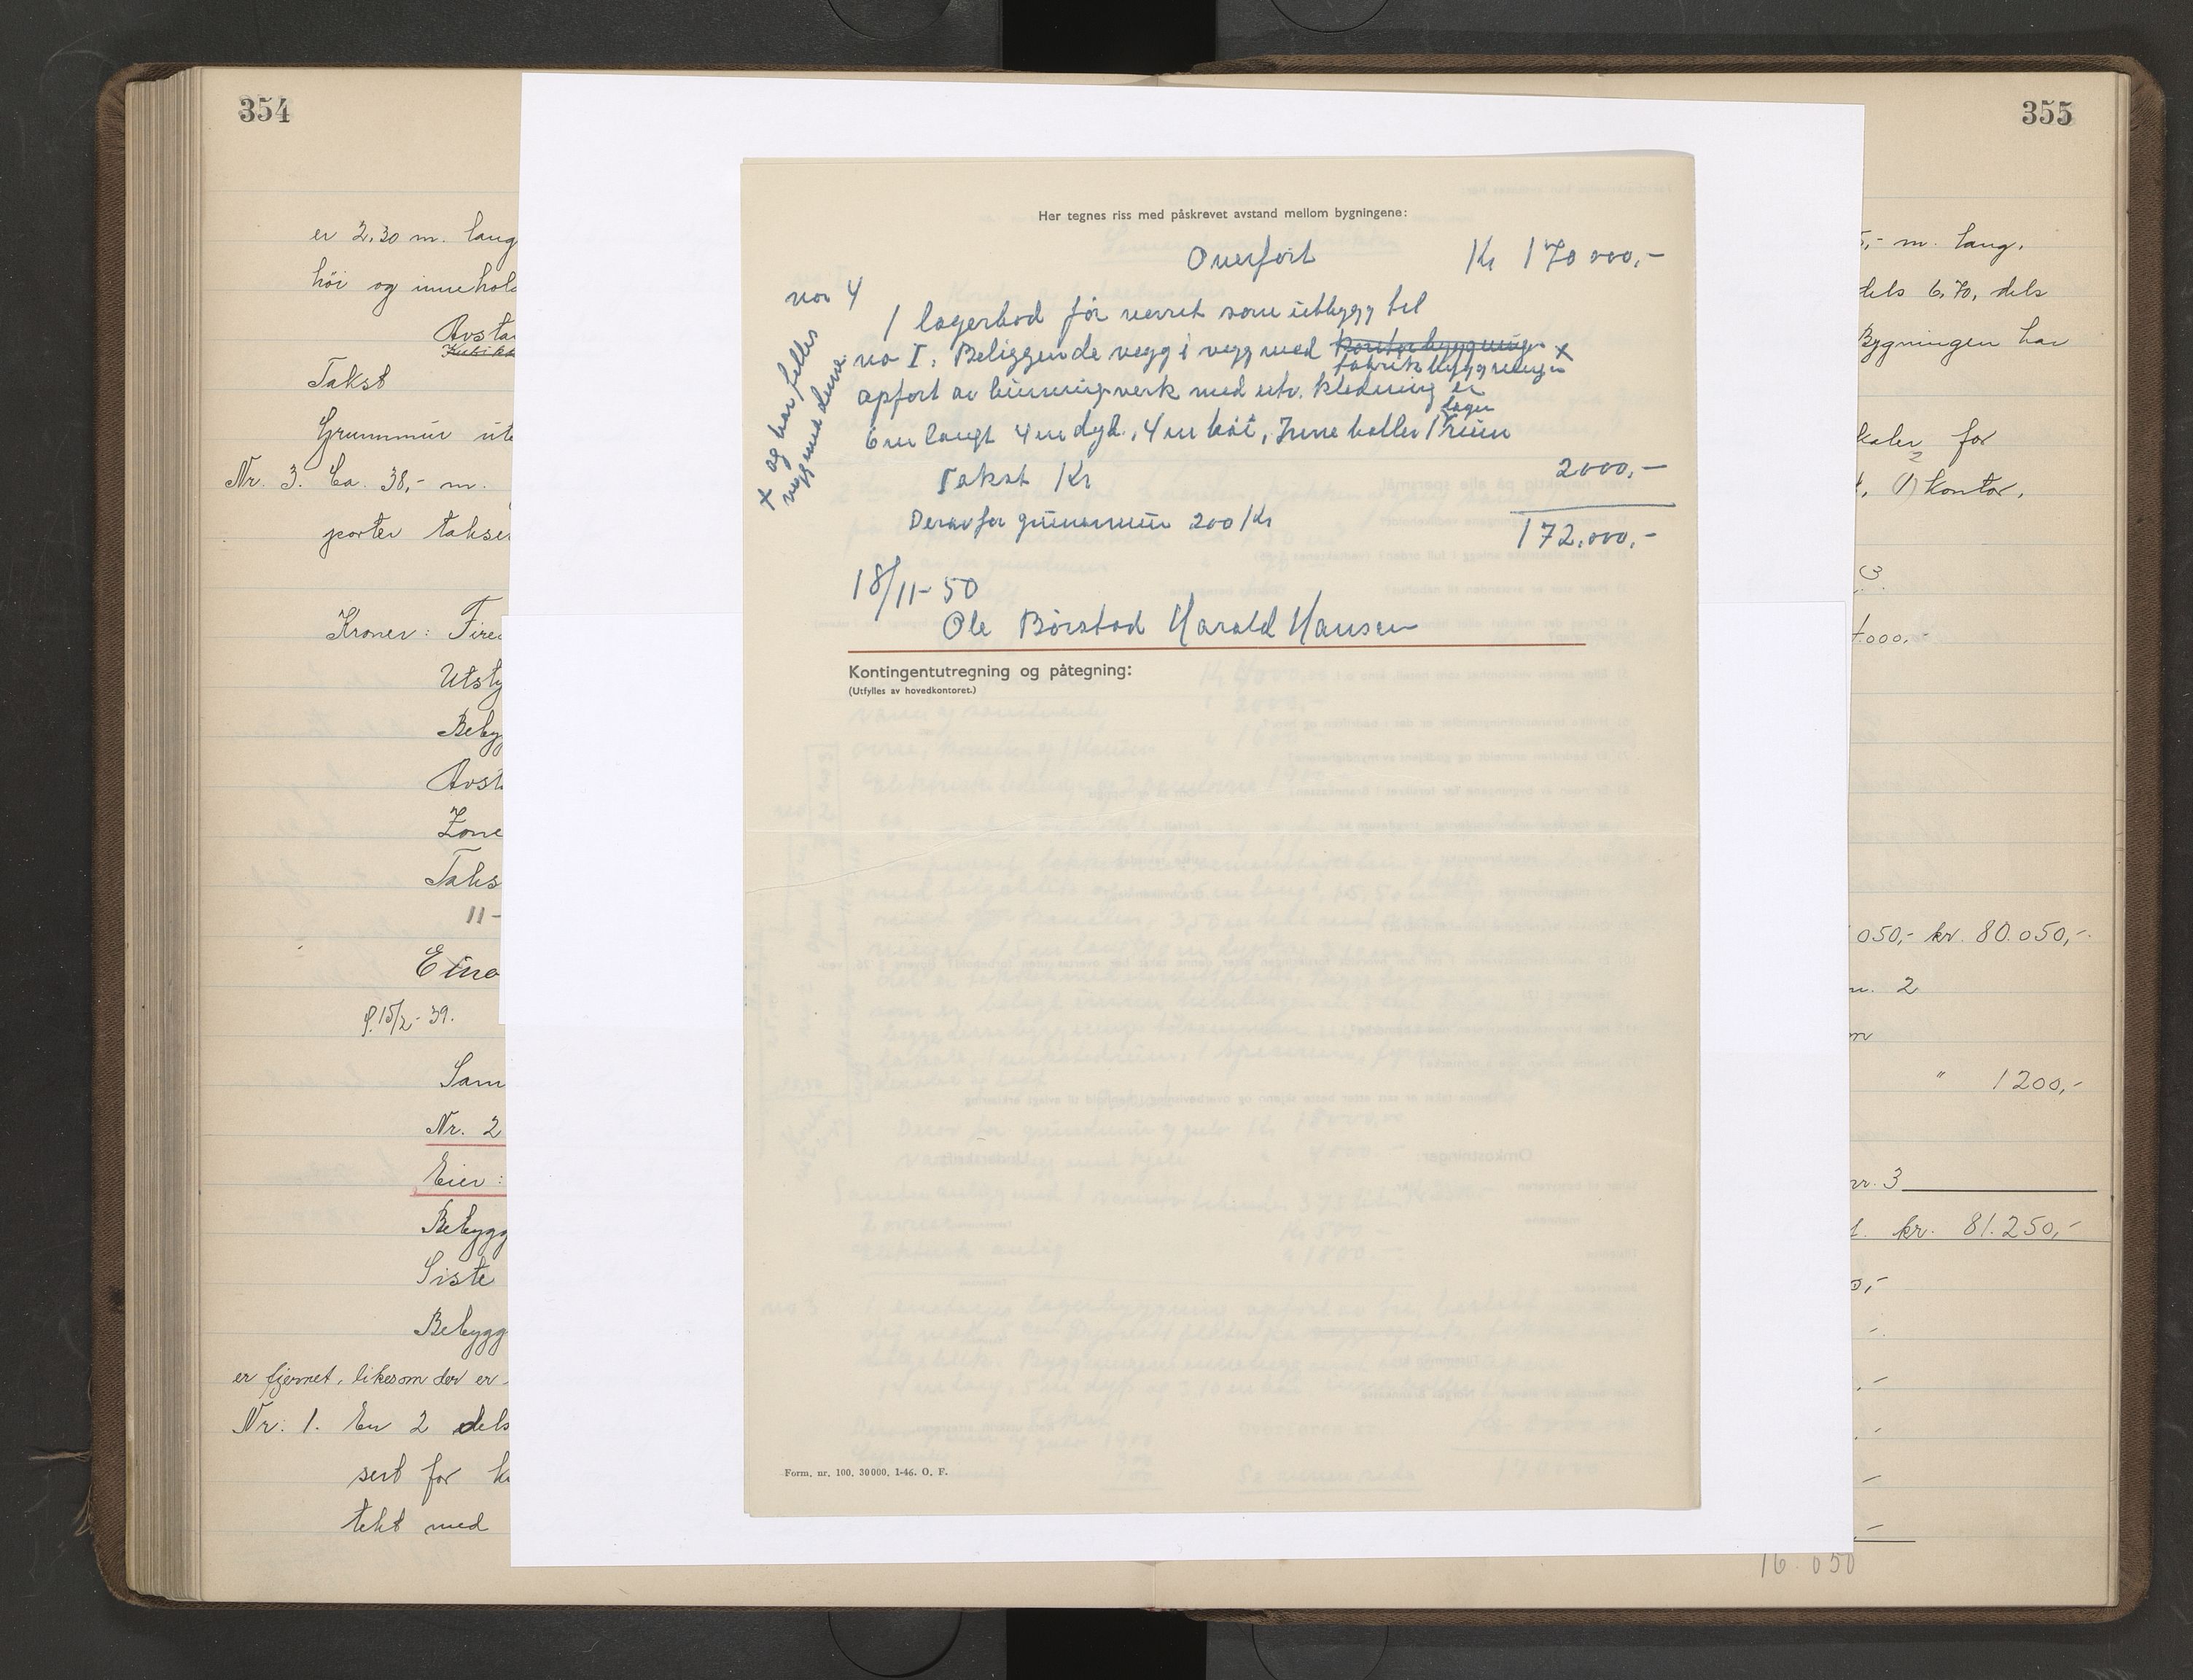 354
er 2,30 m. lang
høi og innehold
Avsta
Kubikk
Takst
Grunnmur ut
Nr. 3. Ca. 38,- m.
porter takse
Kroner: Fire
Utsty
Beby
Avst
Zone
Taks
11-
Eina
f. 15/2-39.
Sam
Nr. 2
Eier:
Bebygg
Siste
Bebygg
er fjernet, likesom der er
Nr: 1. En 2 dels
sert for k
tekt med
Her tegnes riss med påskrevet avstand mellom bygningene:
Overført Kr 170 000,-
no 4
1 lagerbod før nevnt som utbygg til
no I. Beliggende vegg i vegg med kontorbygningen
fabrikkbyggningen x
opført av binningsverk med utv. kledning er
6 m langt 4 m dyb., 4 m høi, Inneholder 1 lager rum
Takst Kr 2000,-
Derav for grunnmur 200 Kr
172.000,-
x og har felles
vegg med denne
18/11-50
Ole Børstad Harald Hansen
Kontingentutregning og påtegning:
(Utfylles av hovedkontoret.)
Form. nr. 100. 30000. 1-46. O. F.
355
5,- m. lang.
dels 6,70, dels
Bygningen har
kaler for
2
1. (1) kontor.
3.
4.000.-
050,- kr. 80.050,-
n. 2
m
" 1200,-
nr. 3
1. kr. 81.250,-
0,-
16.050